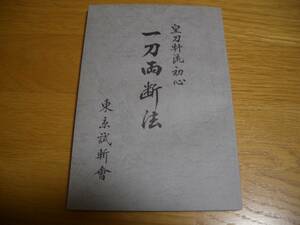 皇刀軒流・初心
一刀両断法
東京試斬會